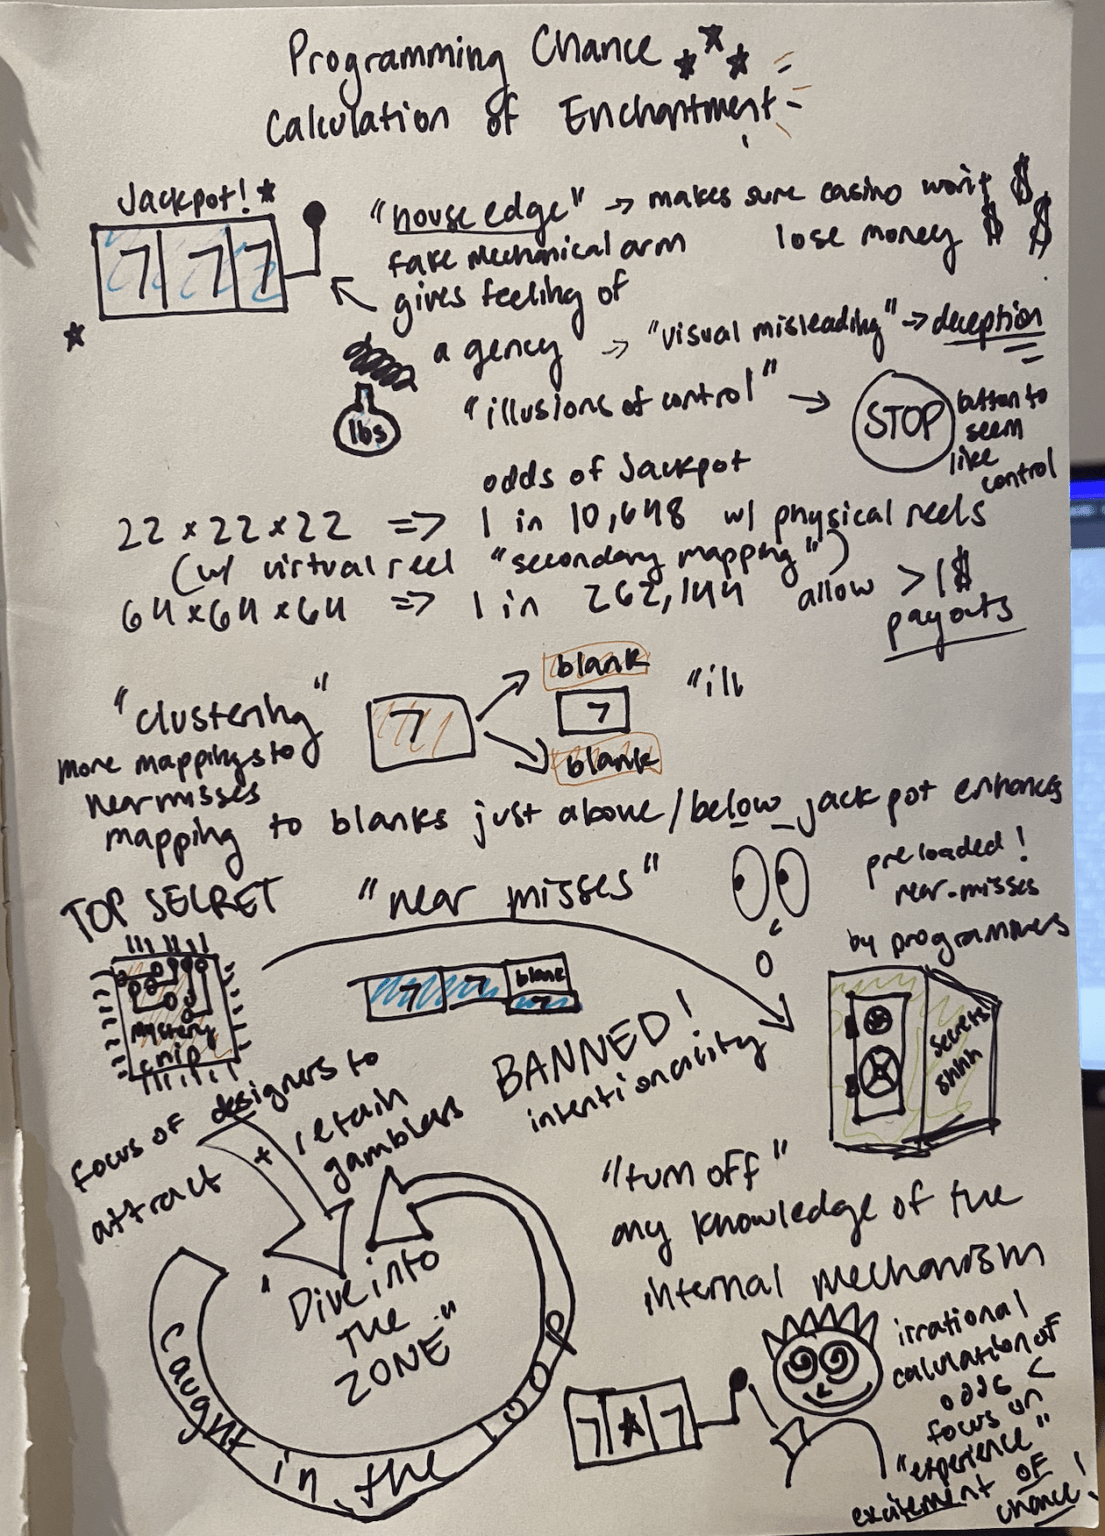 Programming Chance
Calculation of Enchantment
Jackpot!
7 7 7
"house edge" → makes sure casino won't $
lose money $ $
fake mechanical arm
gives feeling of
agency → "visual misleading" → deception
lbs
"illusions of control" →
STOP
button to
seem
like
control
odds of Jackpot
22 x 22 x 22 => 1 in 10,648 w/ physical reels
(w/ virtual reel "secondary mapping")
64 x 64 x 64 => 1 in 262,144 allow > 1$
payouts
"clustering"
more mappings to
near misses
7
blank
7
blank
"ill
mapping to blanks just above/below jackpot enhances
"near misses"
preloaded!
near-misses
by programmers
TOP SECRET
Mystery
chip
7 7 blank
7
BANNED!
intentionality
secrets
shhh
focus of designers to
attract + retain
gamblers
"Dive into
THE
ZONE"
caught in the loop
"turn off"
any knowledge of the
internal mechanism
7 7
irrational
calculation of
odds <
focus on
"experience"
excitement OF
chance!